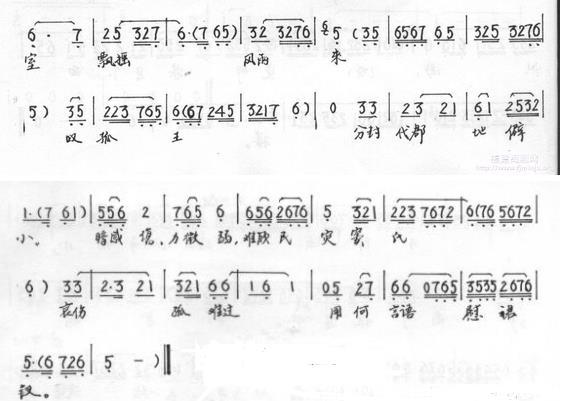 6· 7 | 25 327 | 6·(7 65) | 32 3276 | 5 (35 | 6567 65 | 325 3276 |
室 飘摇 风雨 来
5) 35 | 223 765 | 6(67 245 | 3217 6) | 0 33 | 23 21 | 61 2532 |
叹 孤 王 分封 代郡 地 僻
1·(7 61) | 556 2 | 765 6 | 656 2676 | 5 321 | 223 7672 | 6(76 5672 |
小, 暗感 力微 弱, 难 民 灾 害,
6) 33 | 2·3 21 | 321 66 | 16 1 | 05 27 | 66 0765 | 3535 2676 |
哀伤 孤 难过 用 何 言语 慰
5·(6 726 | 5 - )‖
汉。